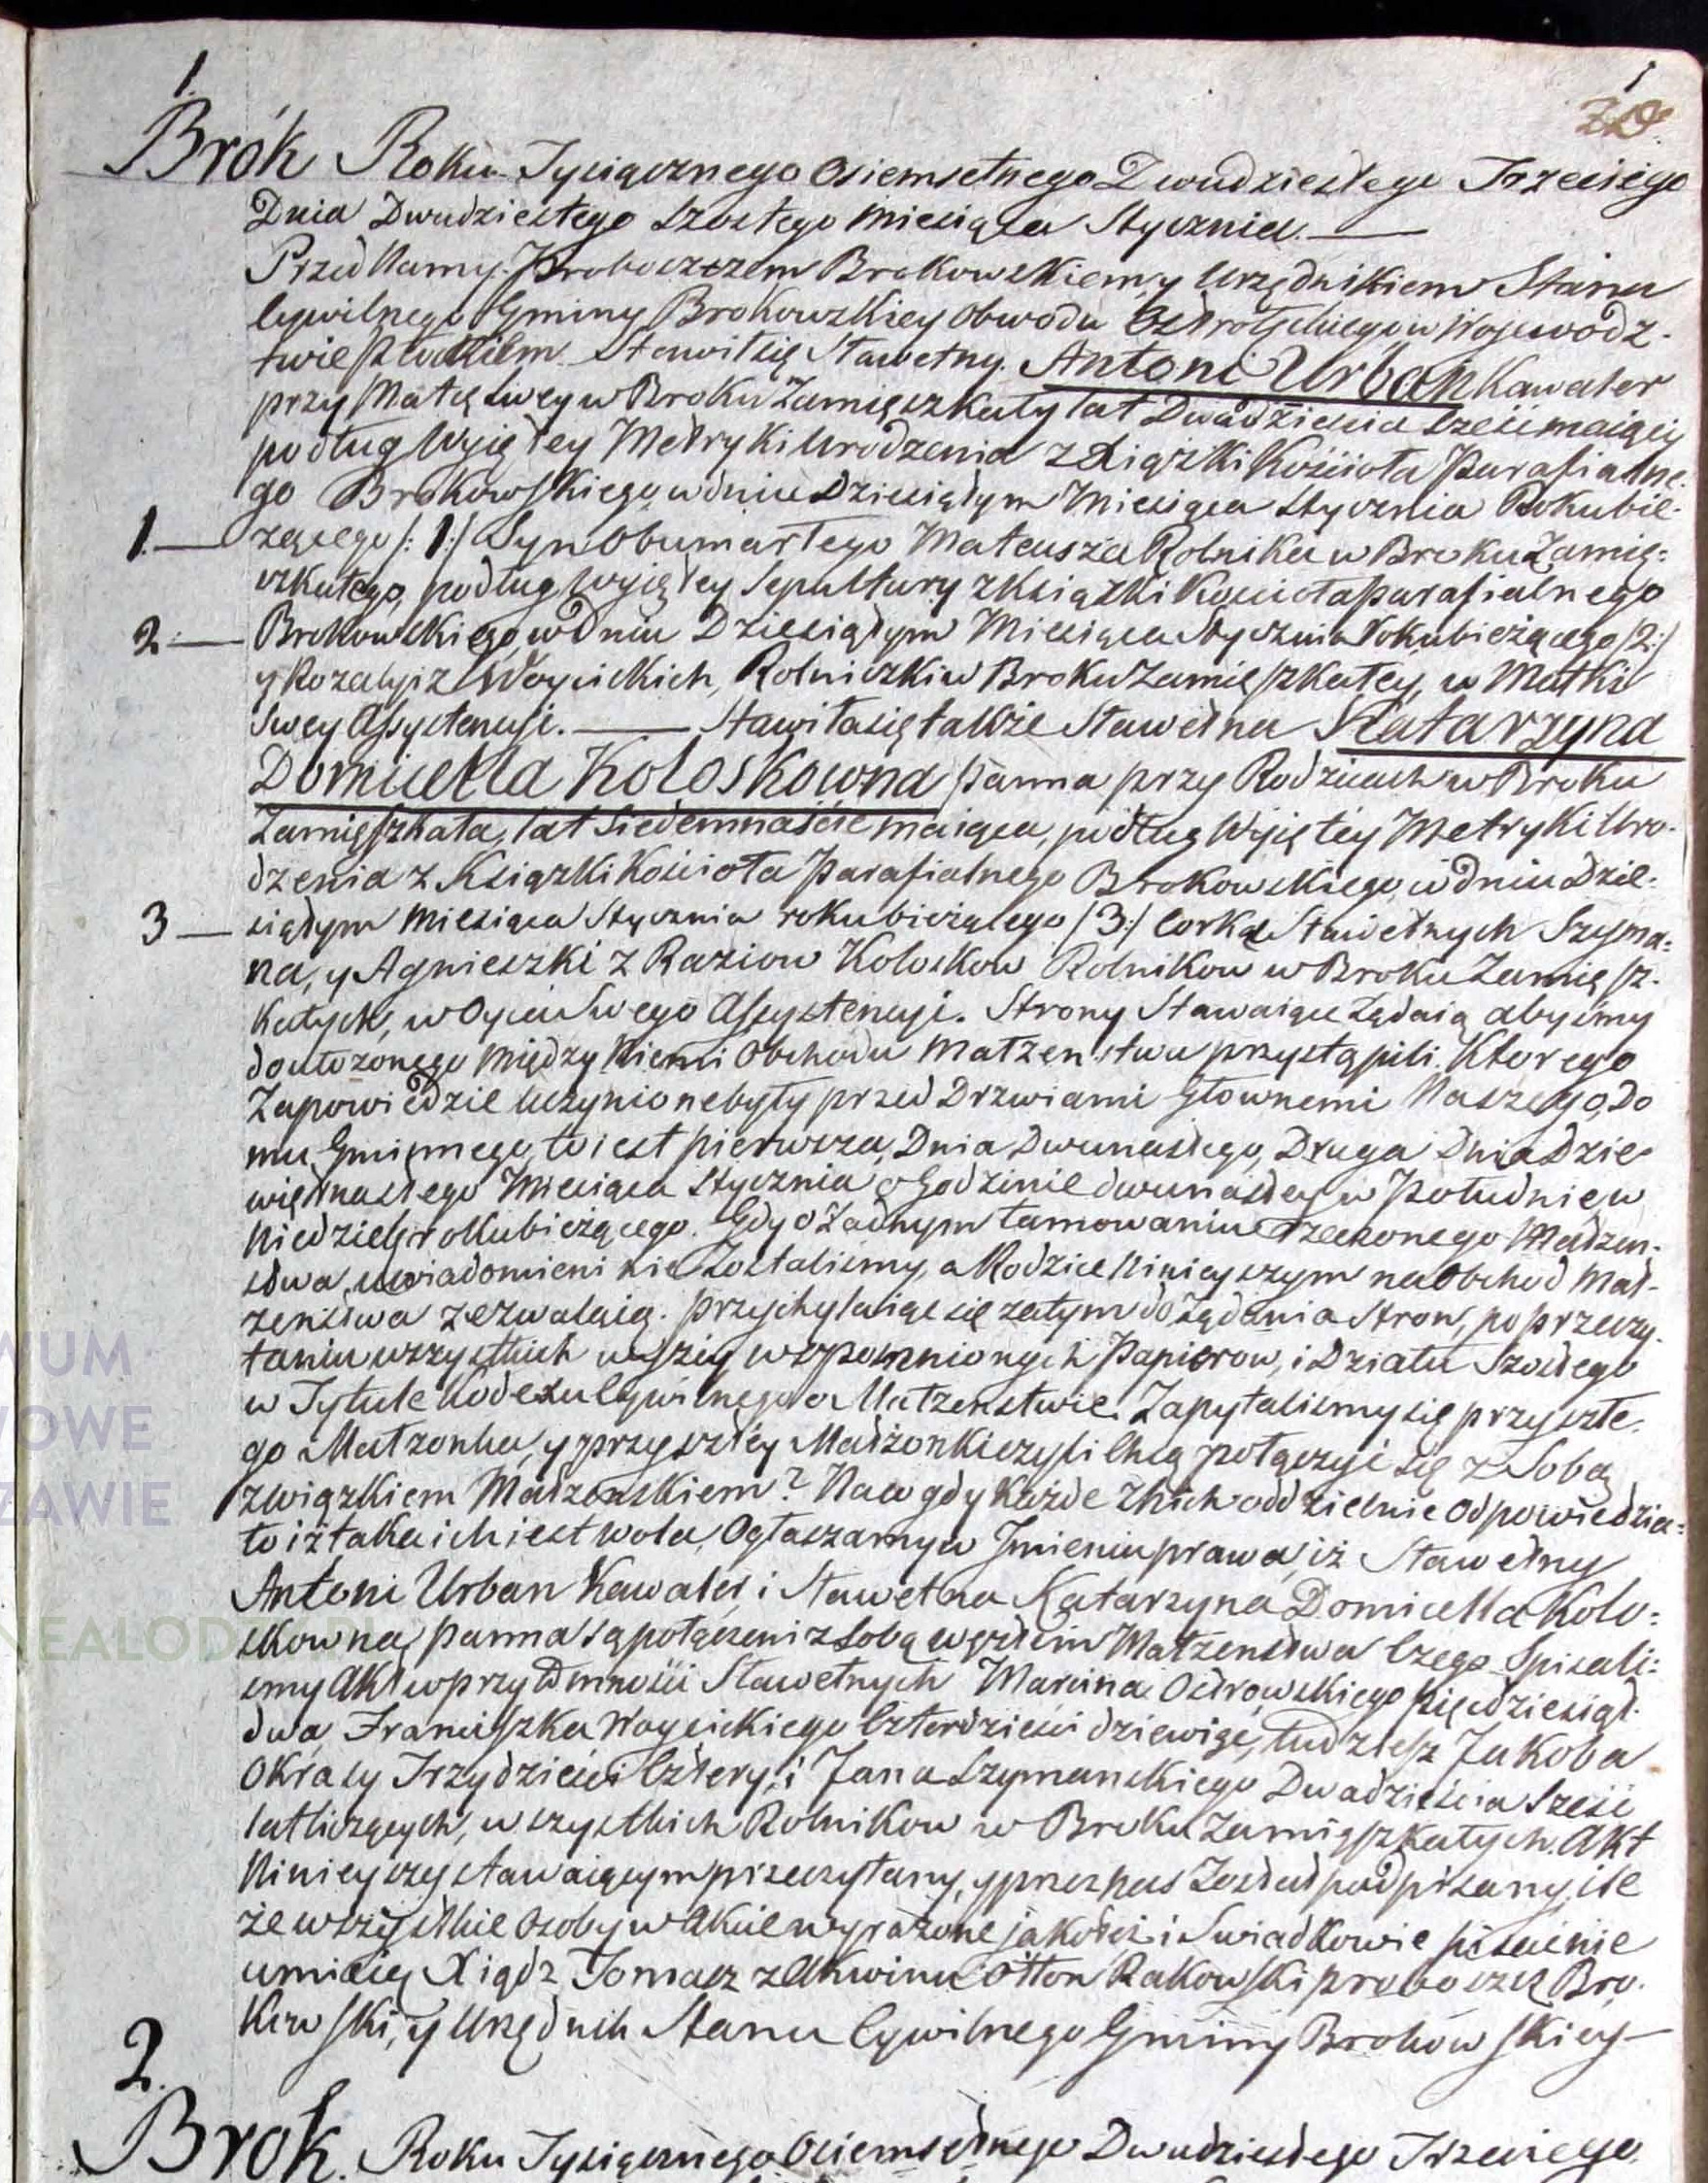 1.
1
Brók Roku Tysiącznego Osiemsetnego Dwudziestego Trzeciego
Dnia Dwudziestego Szostego Miesiąca Stycznia. —
Przed Namy Proboszczem Brokowskiemy Urzędnikiem Stanu
Cywilnego Gminy Brokowskiey Obwodu Ostrołęckiego w Wojewodz-
twie Płockiem Stawił się Sławetny. Antoni Urban Kawaler
przy Matcę swey w Broku Zamięszkały lat Dwadzieścia sześć maiący
podług Wyiętey Metryki Urodzenia z Xiążki Kościoła Parafialne-
go Brokowskiego w dniu Dziesiątym Miesiąca Stycznia Roku bie-
1. — żącego /: 1 :/ Syn Obumarłego Mateusza Rolnika w Broku Zamię-
szkałego, podług wyiętey Sepultury z Książki Kościoła parafialnego
2 — Brokowskiego w Dniu Dziesiątym Miesiąca Stycznia Roku bieżącego /2:/
y Rozalyi z Woycickich, Rolniczki w Broku Zamięszkałey, w Matki
Swey Assystencyi. — Stawiła się także Sławetna Katarzyna
Domicella Kołoskowna panna przy Rodzicach w Broku
Zamięszkała, lat Siedemnaście maiąca, podług Wyiętey Metryki Uro-
dzenia z Książki Kościoła Parafialnego Brokowskiego, w dniu Dzie-
3 — siątym Miesiąca Stycznia roku bieżącego /3:/ Corka Sławetnych Szymo-
na, y Agnieszki z Raziow Koloskow Rolnikow w Broku Zamięsz-
kałych, w Oyca Swego Assystencyi. Strony Stawaiące żądaią abyśmy
do ułożonego między Niemi Obchodu Małżeństwa przystąpili. Ktorego
Zapowiedzie uczynione były przed Drzwiami Głownemi Naszego Do
mu Gminnego, to iest pierwsza, Dnia Dwunastego, Druga Dnia Dzie-
więtnastego Miesiąca Stycznia o Godzinie dwunastey w Południe w
Niedziele roku bieżącego. Gdy o Żadnym tamowaniu rzeczonego Małżeń-
stwa, uwiadomieni nie Zostaliśmy, a Rodzice Ninieyszym na Obchod Mał-
żeństwa zezwalaią. przychylaiąc się zatym do żądania Stron, po przeczy-
taniu wszystkich wyżey wspomnionych Papierow, i Działu Szostego
w Tytule Kodexu Cywilnego o Małżenstwie. Zapytalismy się przyszłe-
go Małżonka, y przyszłey Małżonki czyli Chcą połączyć się z Sobą
związkiem Małżeńskiem? Na co gdy każde z Nich oddzielnie odpowiedzia-
ło iż taka ich iest wola, Ogłaszamy w Imieniu prawa, iż Sławetny
Antoni Urban Kawaler, i Sławetna Katarzyna Domicella Kolo-
skowna, panna są połączeni z sobą węzłem Małżeństwa Czego Spisali-
smy Akt w przytomności Sławetnych Marcina Ostrowskiego pięćdziesiąt
dwa, Franciszka Woycickiego Czterdzieści dziewięć, tudziesz Jakoba
Okrasy Trzydzieści Cztery, i Jana Szymanskiego Dwadzieścia sześć
lat liczących, wszystkich Rolnikow w Broku Zamięszkałych. Akt
Ninieyszy stawaiącym przeczytany, y przez nas Został podpisany, ile
że wszystkie Osoby w Akcie wyrażone jakoteż i Swiadkowie pisać nie
umieią Xiądz Tomasz z Akwinu Otton Rakowski proboszcz Bro-
kowski, y Urzędnik Stanu Cywilnego Gminy Brokowskiey —
2.
Brok. Roku Tysiącznego Osiemsetnego Dwudziestego Trzeciego